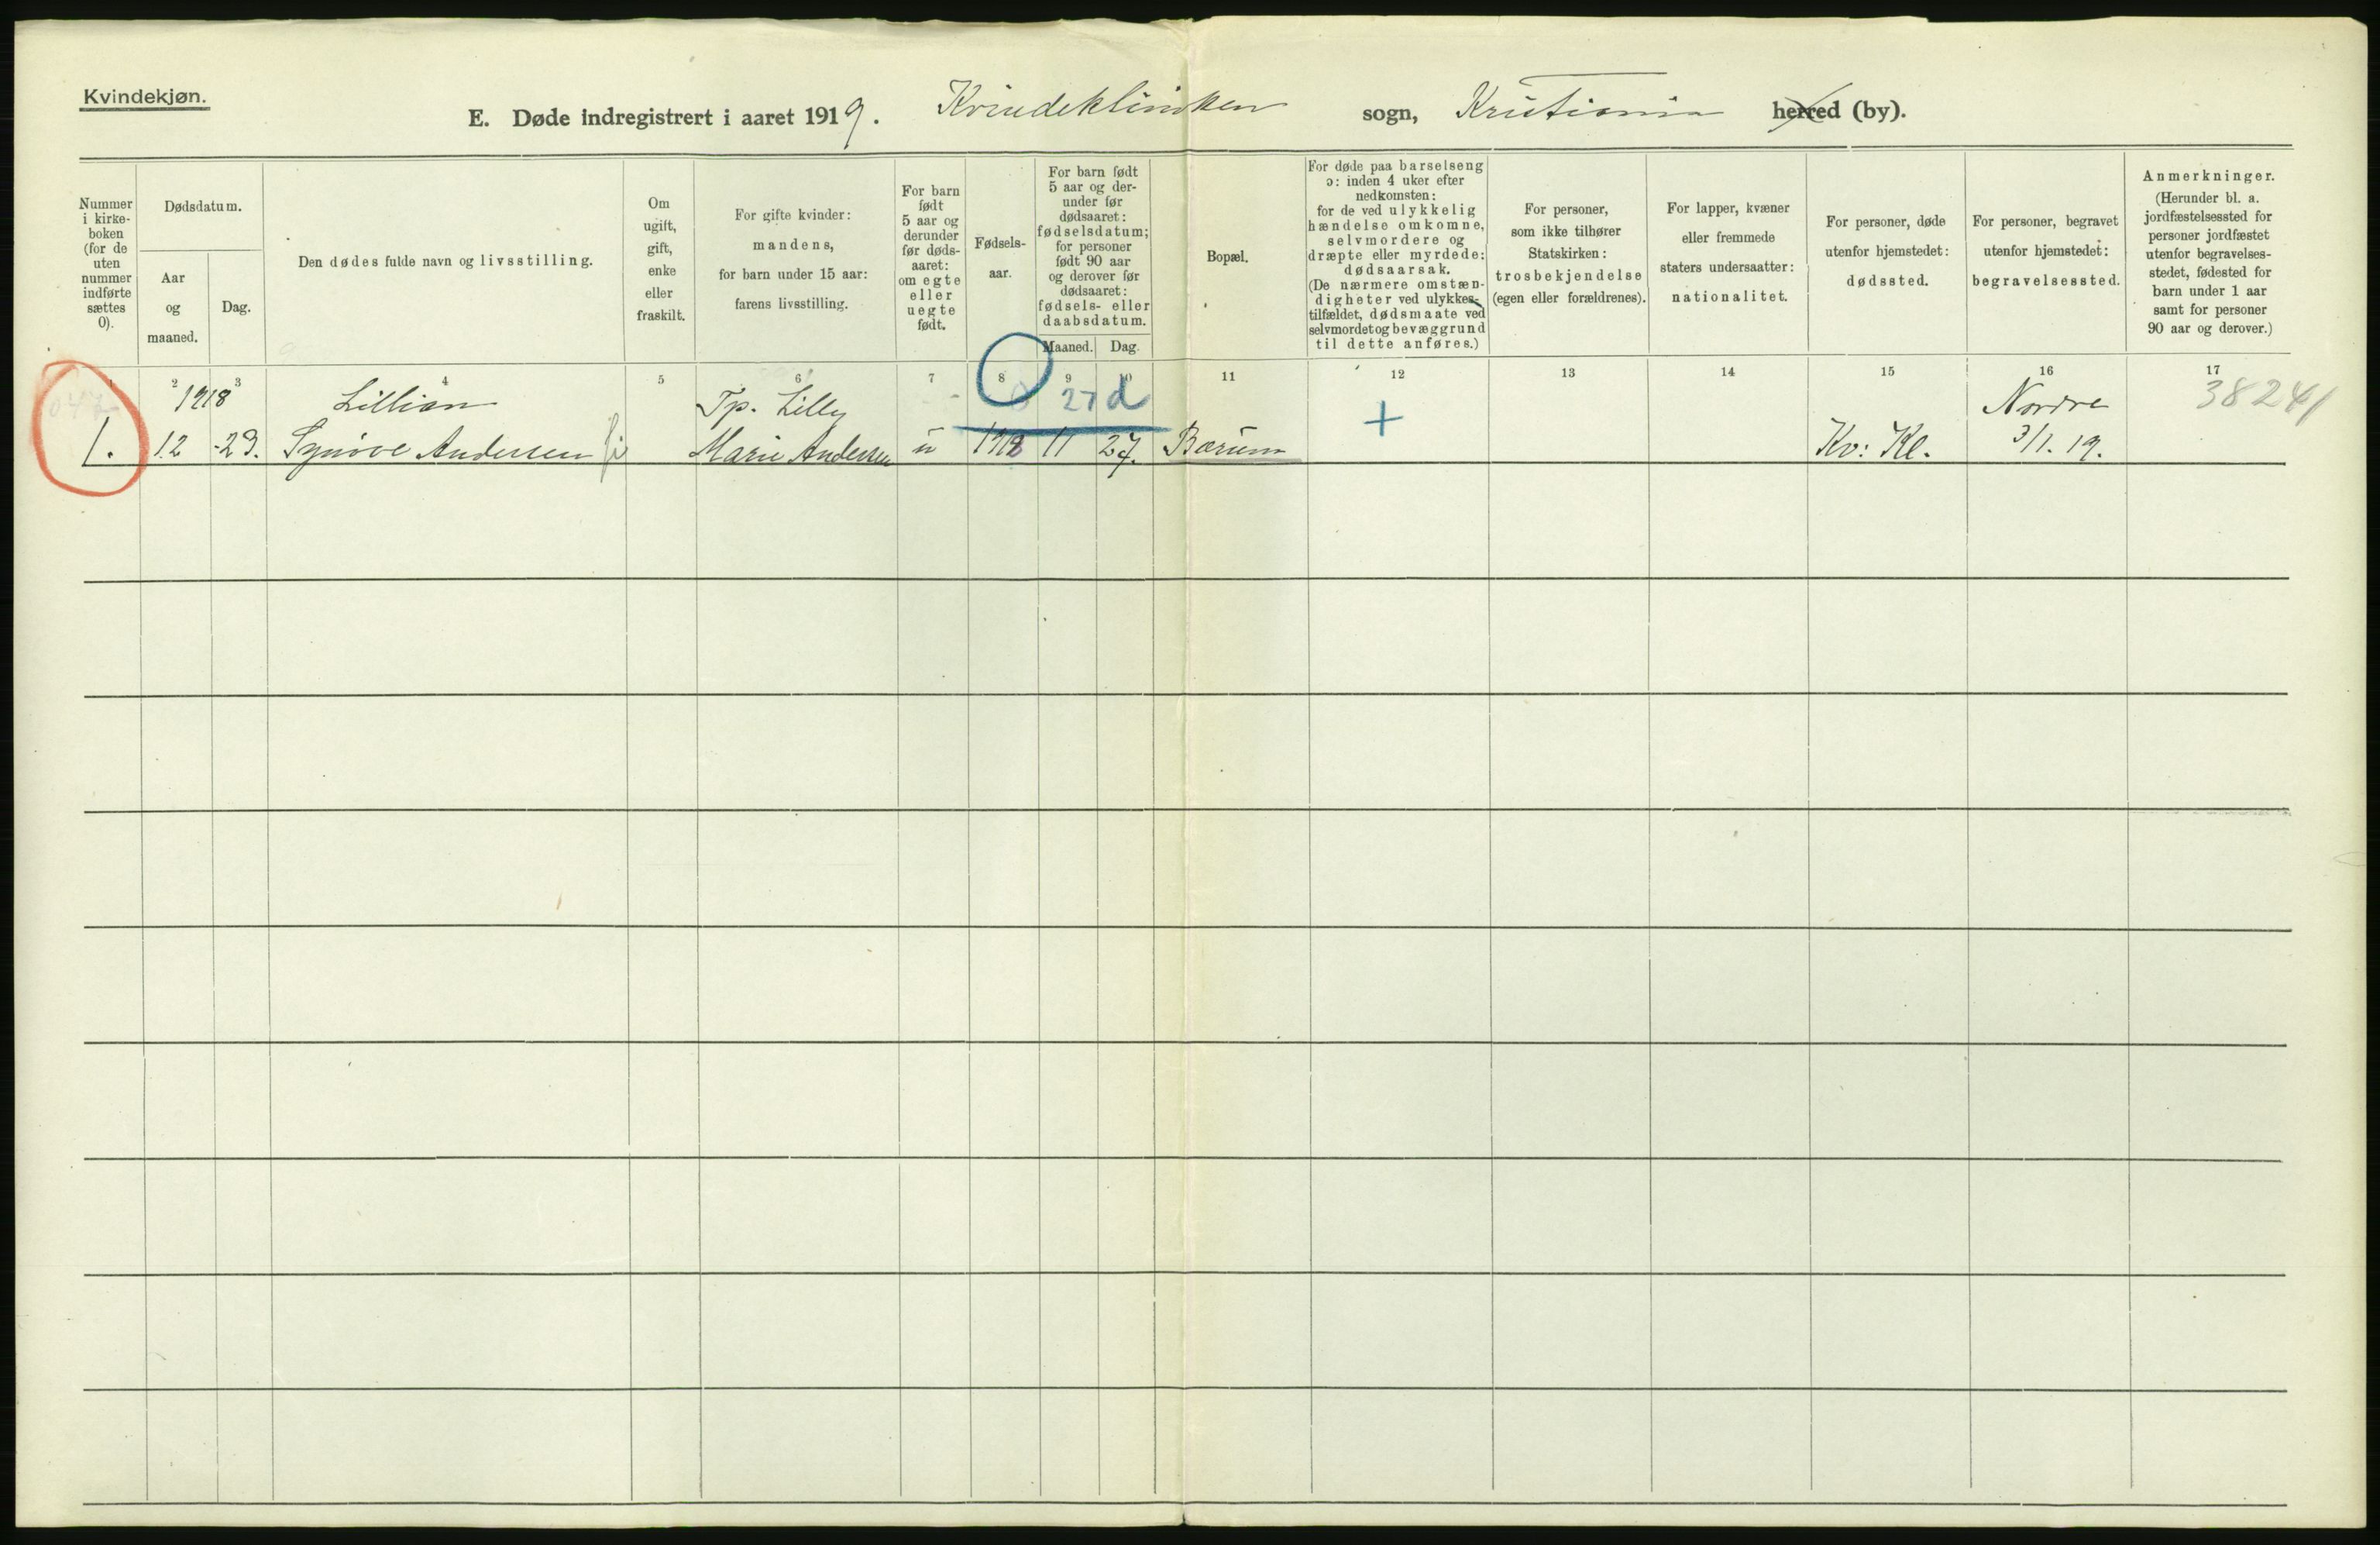 Kvindekjøn.
E. Døde indregistrert i aaret 1919. Kvindeklinikken sogn, Kristiania herred (by).
Nummer i kirke- boken (for de uten nummer indførte sættes 0).
Dødsdatum.
Aar og maaned.
Dag.
Den dødes fulde navn og livsstilling.
Om ugift, gift, enke eller fraskilt.
For gifte kvinder: mandens, for barn under 15 aar: farens livsstilling.
For barn født 5 aar og derunder før døds- aaret: om egte eller uegte født.
Fødsels- aar.
For barn født 5 aar og der- under før dødsaaret: fødselsdatum; for personer født 90 aar og derover før dødsaaret: fødsels- eller daabsdatum.
Maaned. Dag.
Bopæl.
For døde paa barselseng ɔ: inden 4 uker efter nedkomsten: for de ved ulykkelig hændelse omkomne, selvmordere og dræpte eller myrdede: dødsaarsak. (De nærmere omstæn- digheter ved ulykkes- tilfældet, dødsmaate ved selvmordet og bevæggrund til dette anføres.)
For personer, som ikke tilhører Statskirken: trosbekjendelse (egen eller forældrenes).
For lapper, kvæner eller fremmede staters undersaatter: nationalitet.
For personer, døde utenfor hjemstedet: dødssted.
For personer, begravet utenfor hjemstedet: begravelsessted.
Anmerkninger. (Herunder bl. a. jordfæstelsessted for personer jordfæstet utenfor begravelses- stedet, fødested for barn under 1 aar samt for personer 90 aar og derover.)
1 2 3 4 5 6 7 8 9 10 11 12 13 14 15 16 17
1918 Lillian Tp. Lilly 27 d + Nordre 38241
1. 12 -29. Synöve Andersen Marie Andersen u 1918 11 27. Bærum Kv: Kl. 3/1. 19.